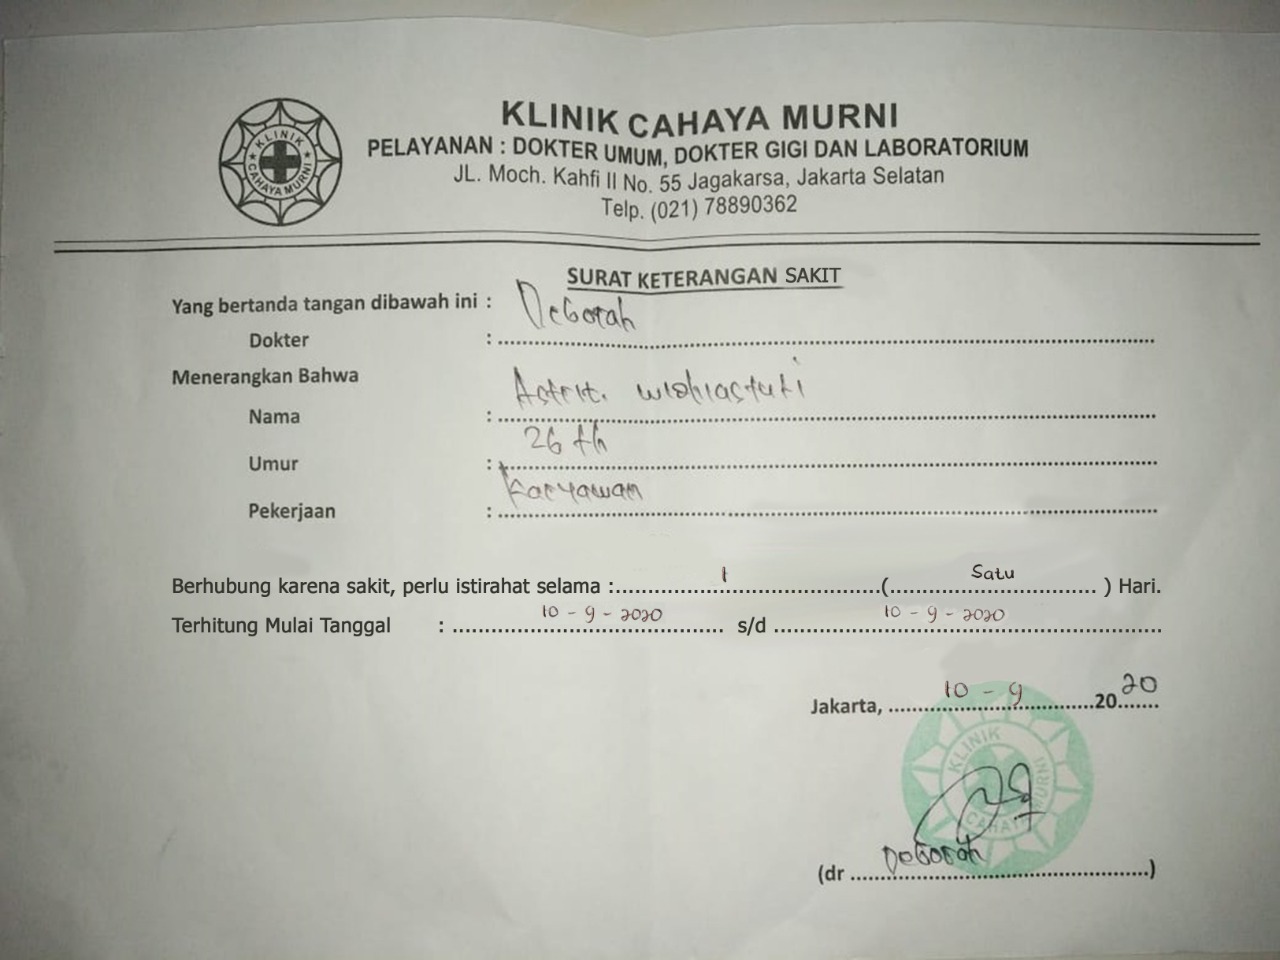 KLINIK CAHAYA MURNI
PELAYANAN : DOKTER UMUM, DOKTER GIGI DAN LABORATORIUM
JL. Moch. Kahfi II No. 55 Jagakarsa, Jakarta Selatan
Telp. (021) 78890362
KLINIK CAHAYA MURNI
SURAT KETERANGAN SAKIT
Yang bertanda tangan dibawah ini :
Dokter : Deborah
Menerangkan Bahwa
Nama : Astrit. widiastuti
Umur : 26 th
Pekerjaan : Karyawan
Berhubung karena sakit, perlu istirahat selama : 1 ( Satu ) Hari.
Terhitung Mulai Tanggal : 10 - 9 - 2020 s/d 10 - 9 - 2020
Jakarta, 10 - 9 2020
KLINIK CAHAYA MURNI
(dr Deborah )